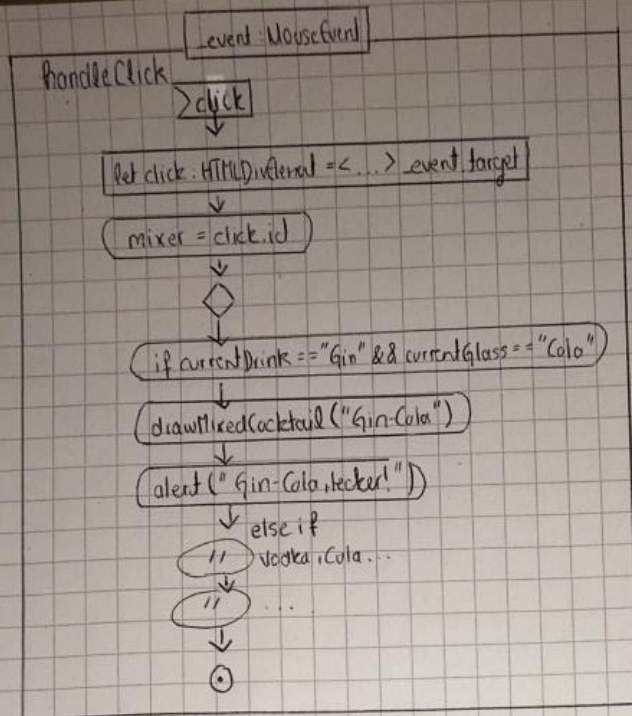 _event: MouseEvent
handleClick
click
let click: HTMLDivElement = <...> _event.target
mixer = click.id
if currentDrink == "Gin" && currentGlass == "Cola"
drawMixedCocktail ("Gin-Cola")
alert ("Gin-Cola, lecker!")
else if
" Vodka, Cola...
" ...